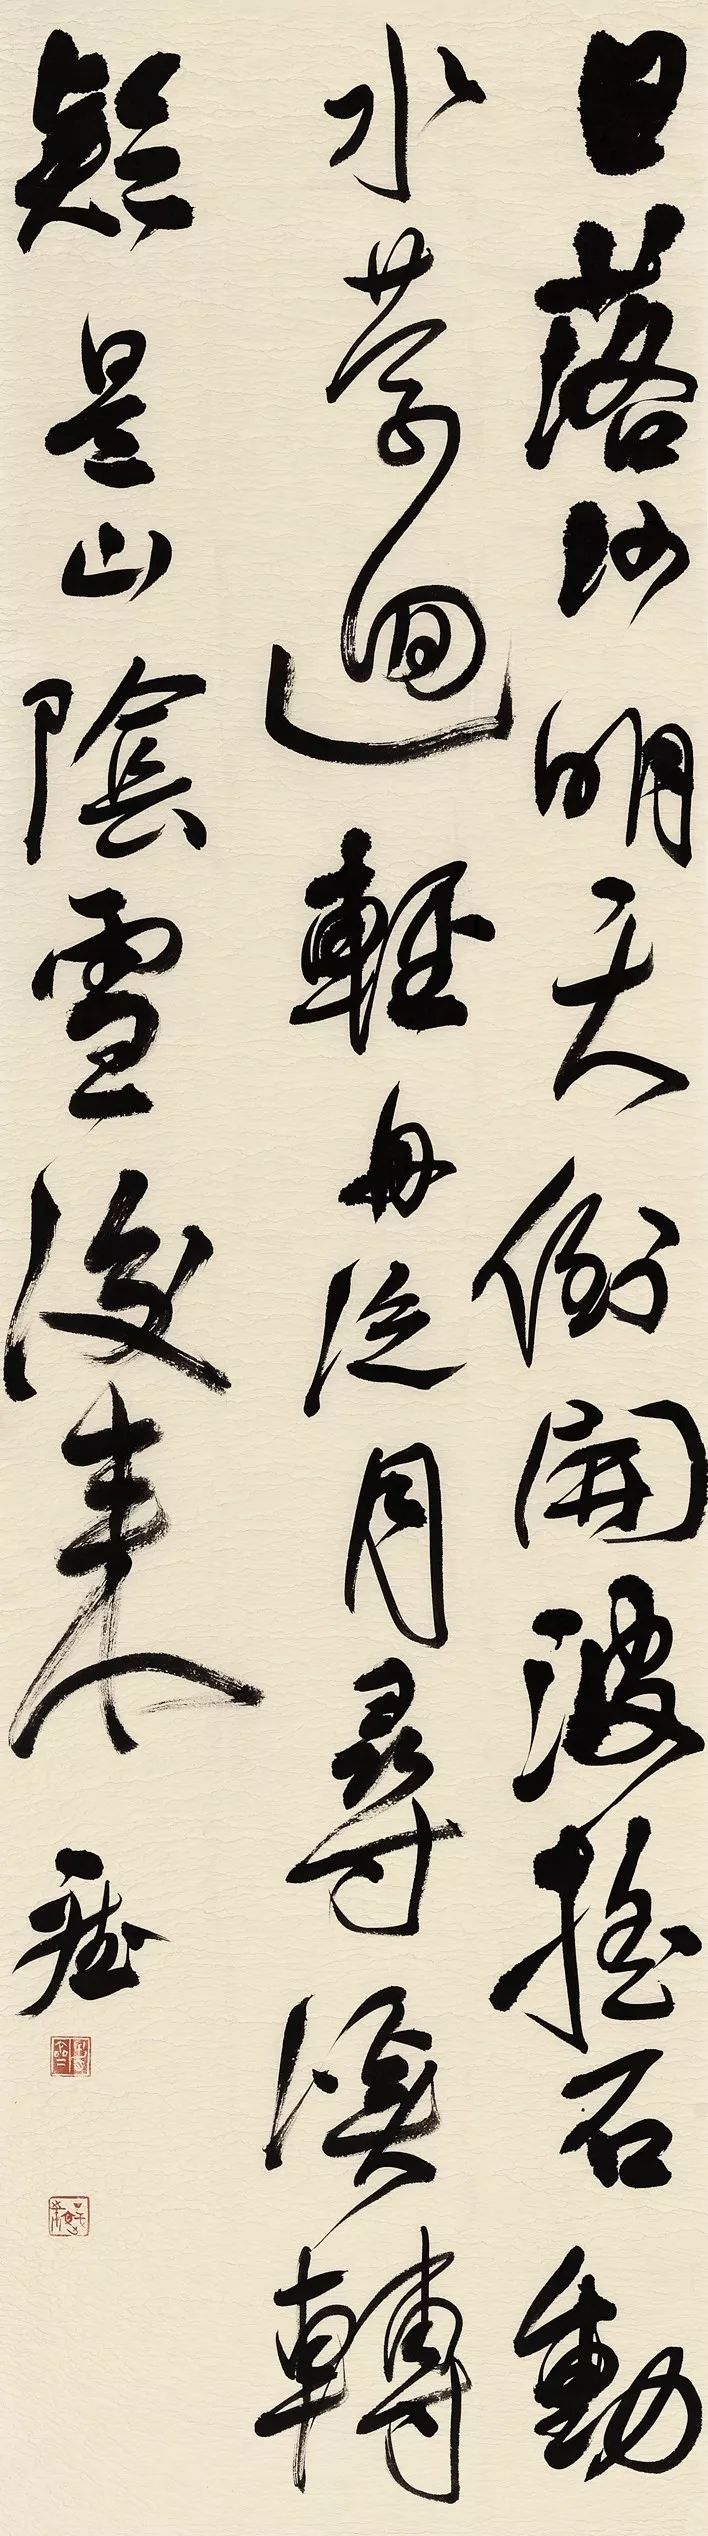 日落沙明天倒開波摇石動
水縈迴輕舟泛月尋溪轉
疑是山陰雪後来